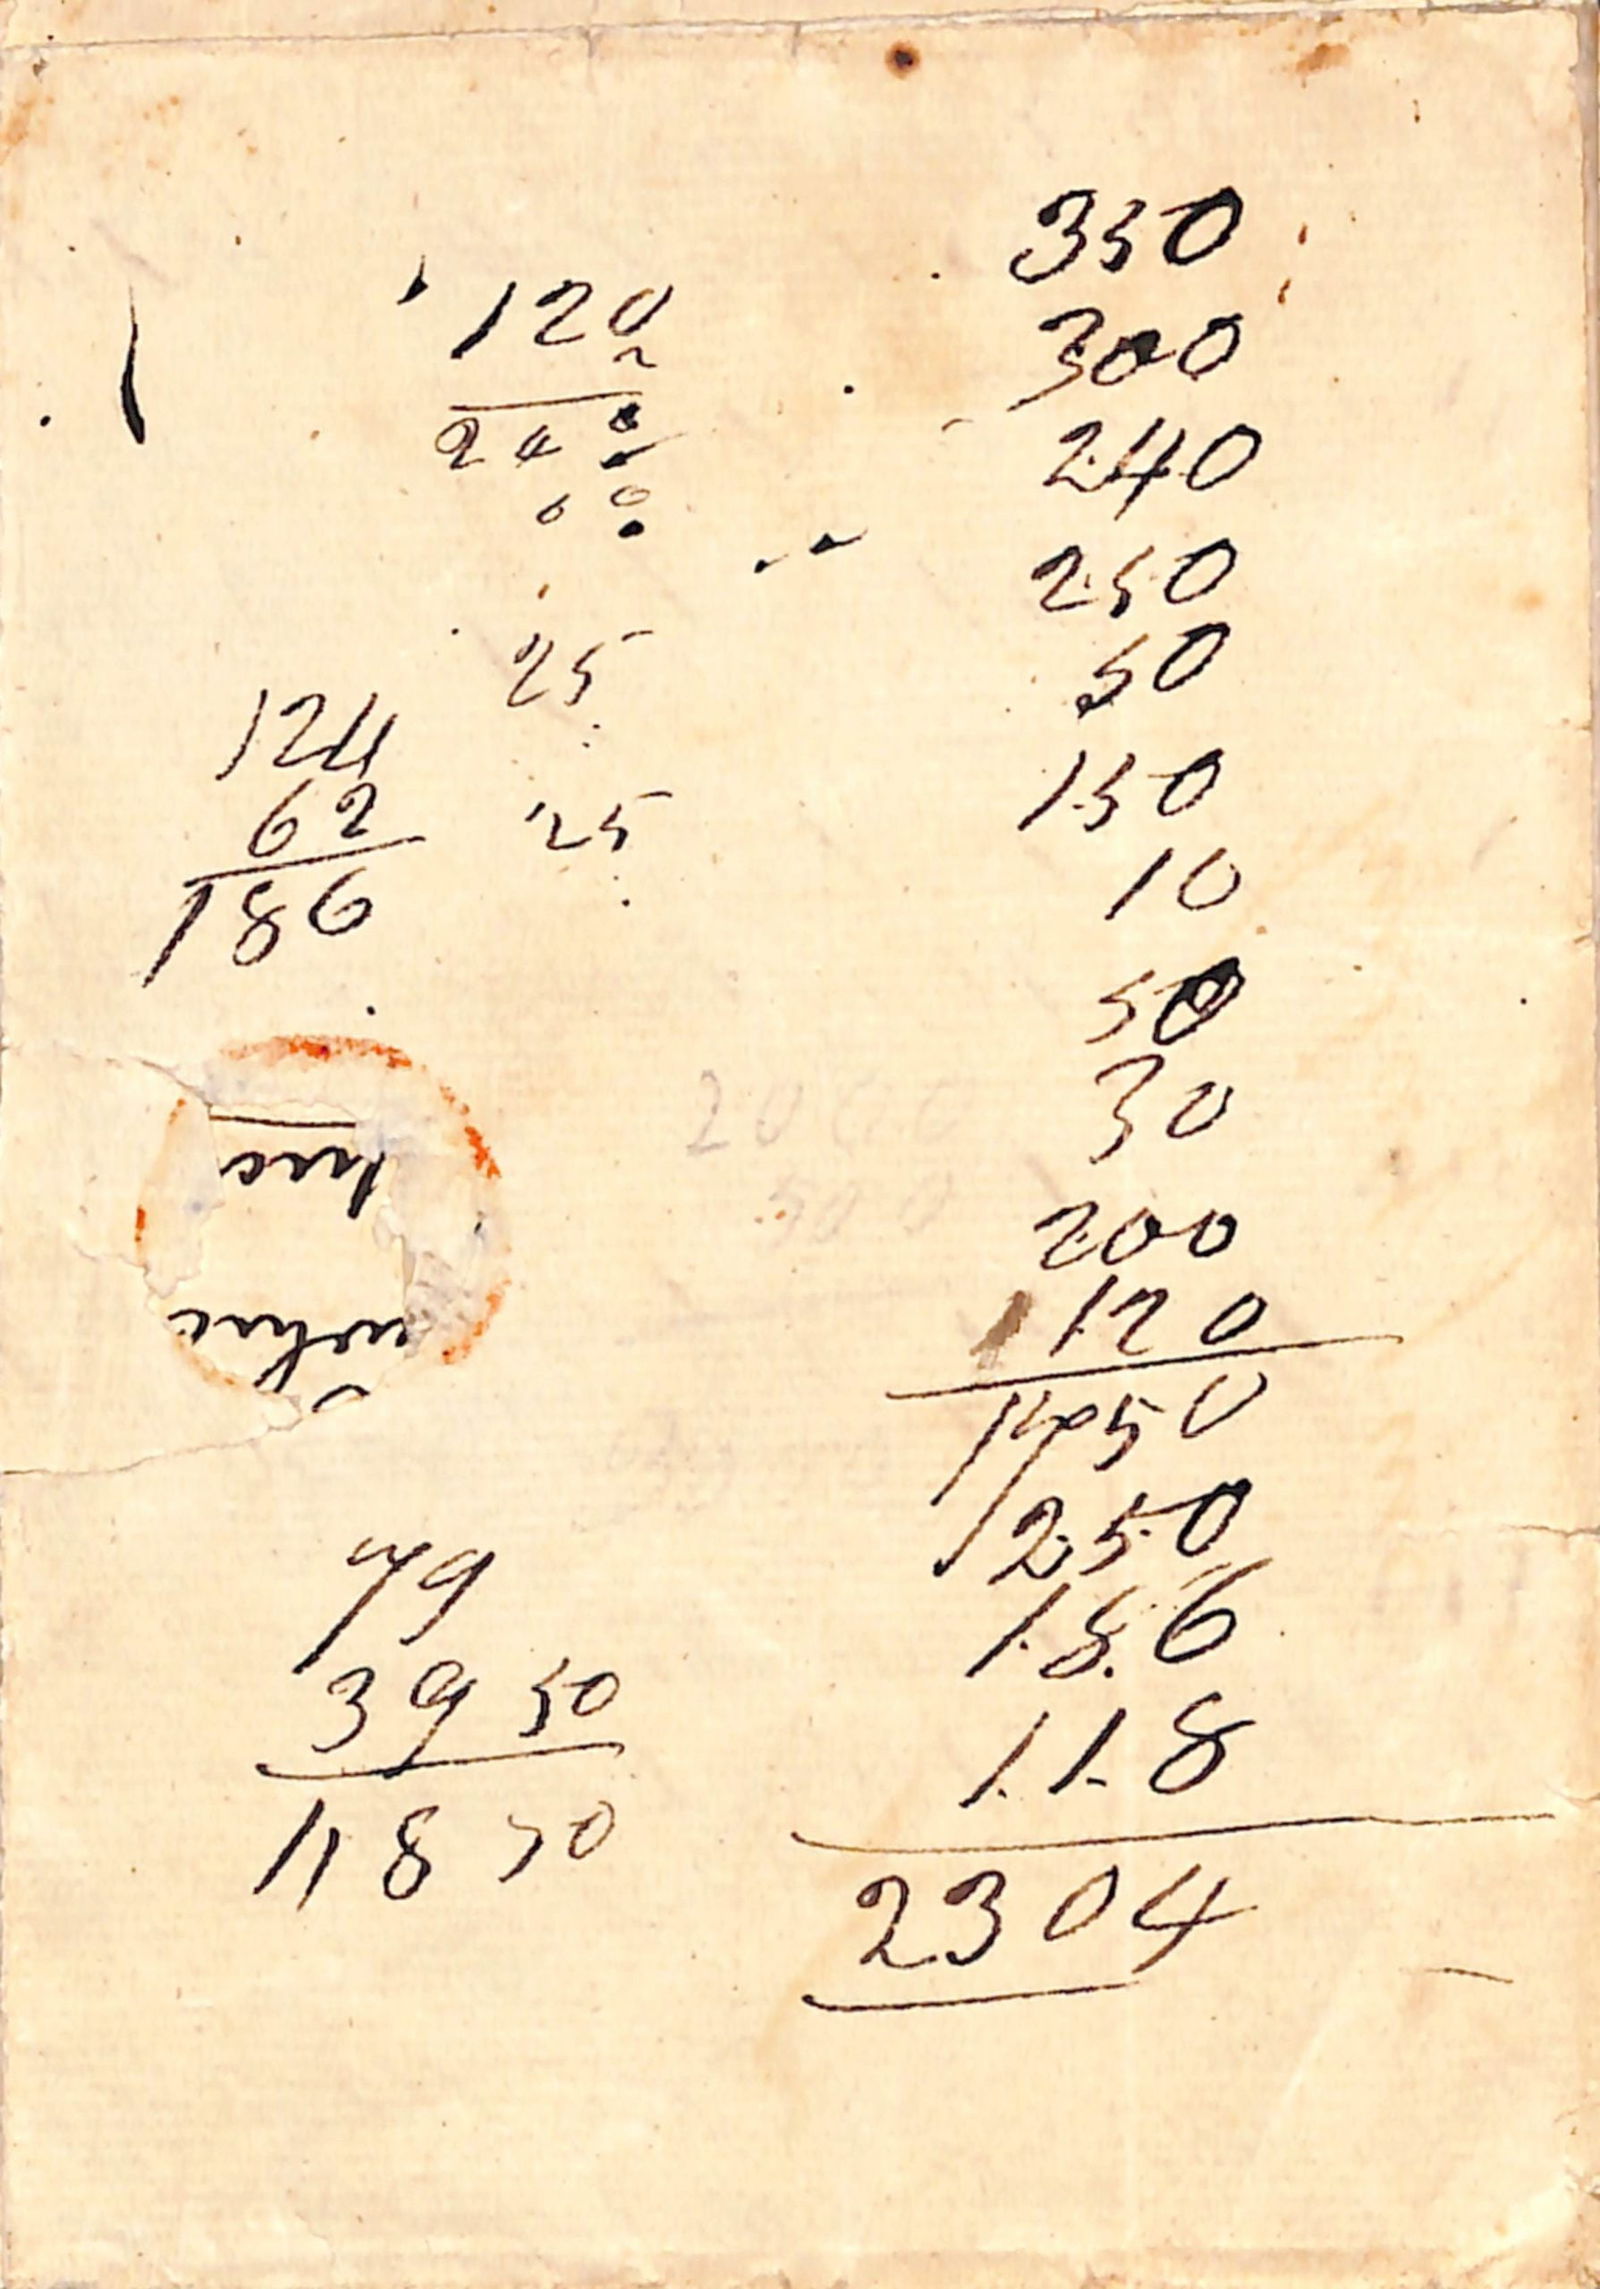 120
2
240
60
25
25
124
62
186
79
39 50
118 50
350
300
240
250
50
150
10
50
30
200
120
1750
250
186
118
2304